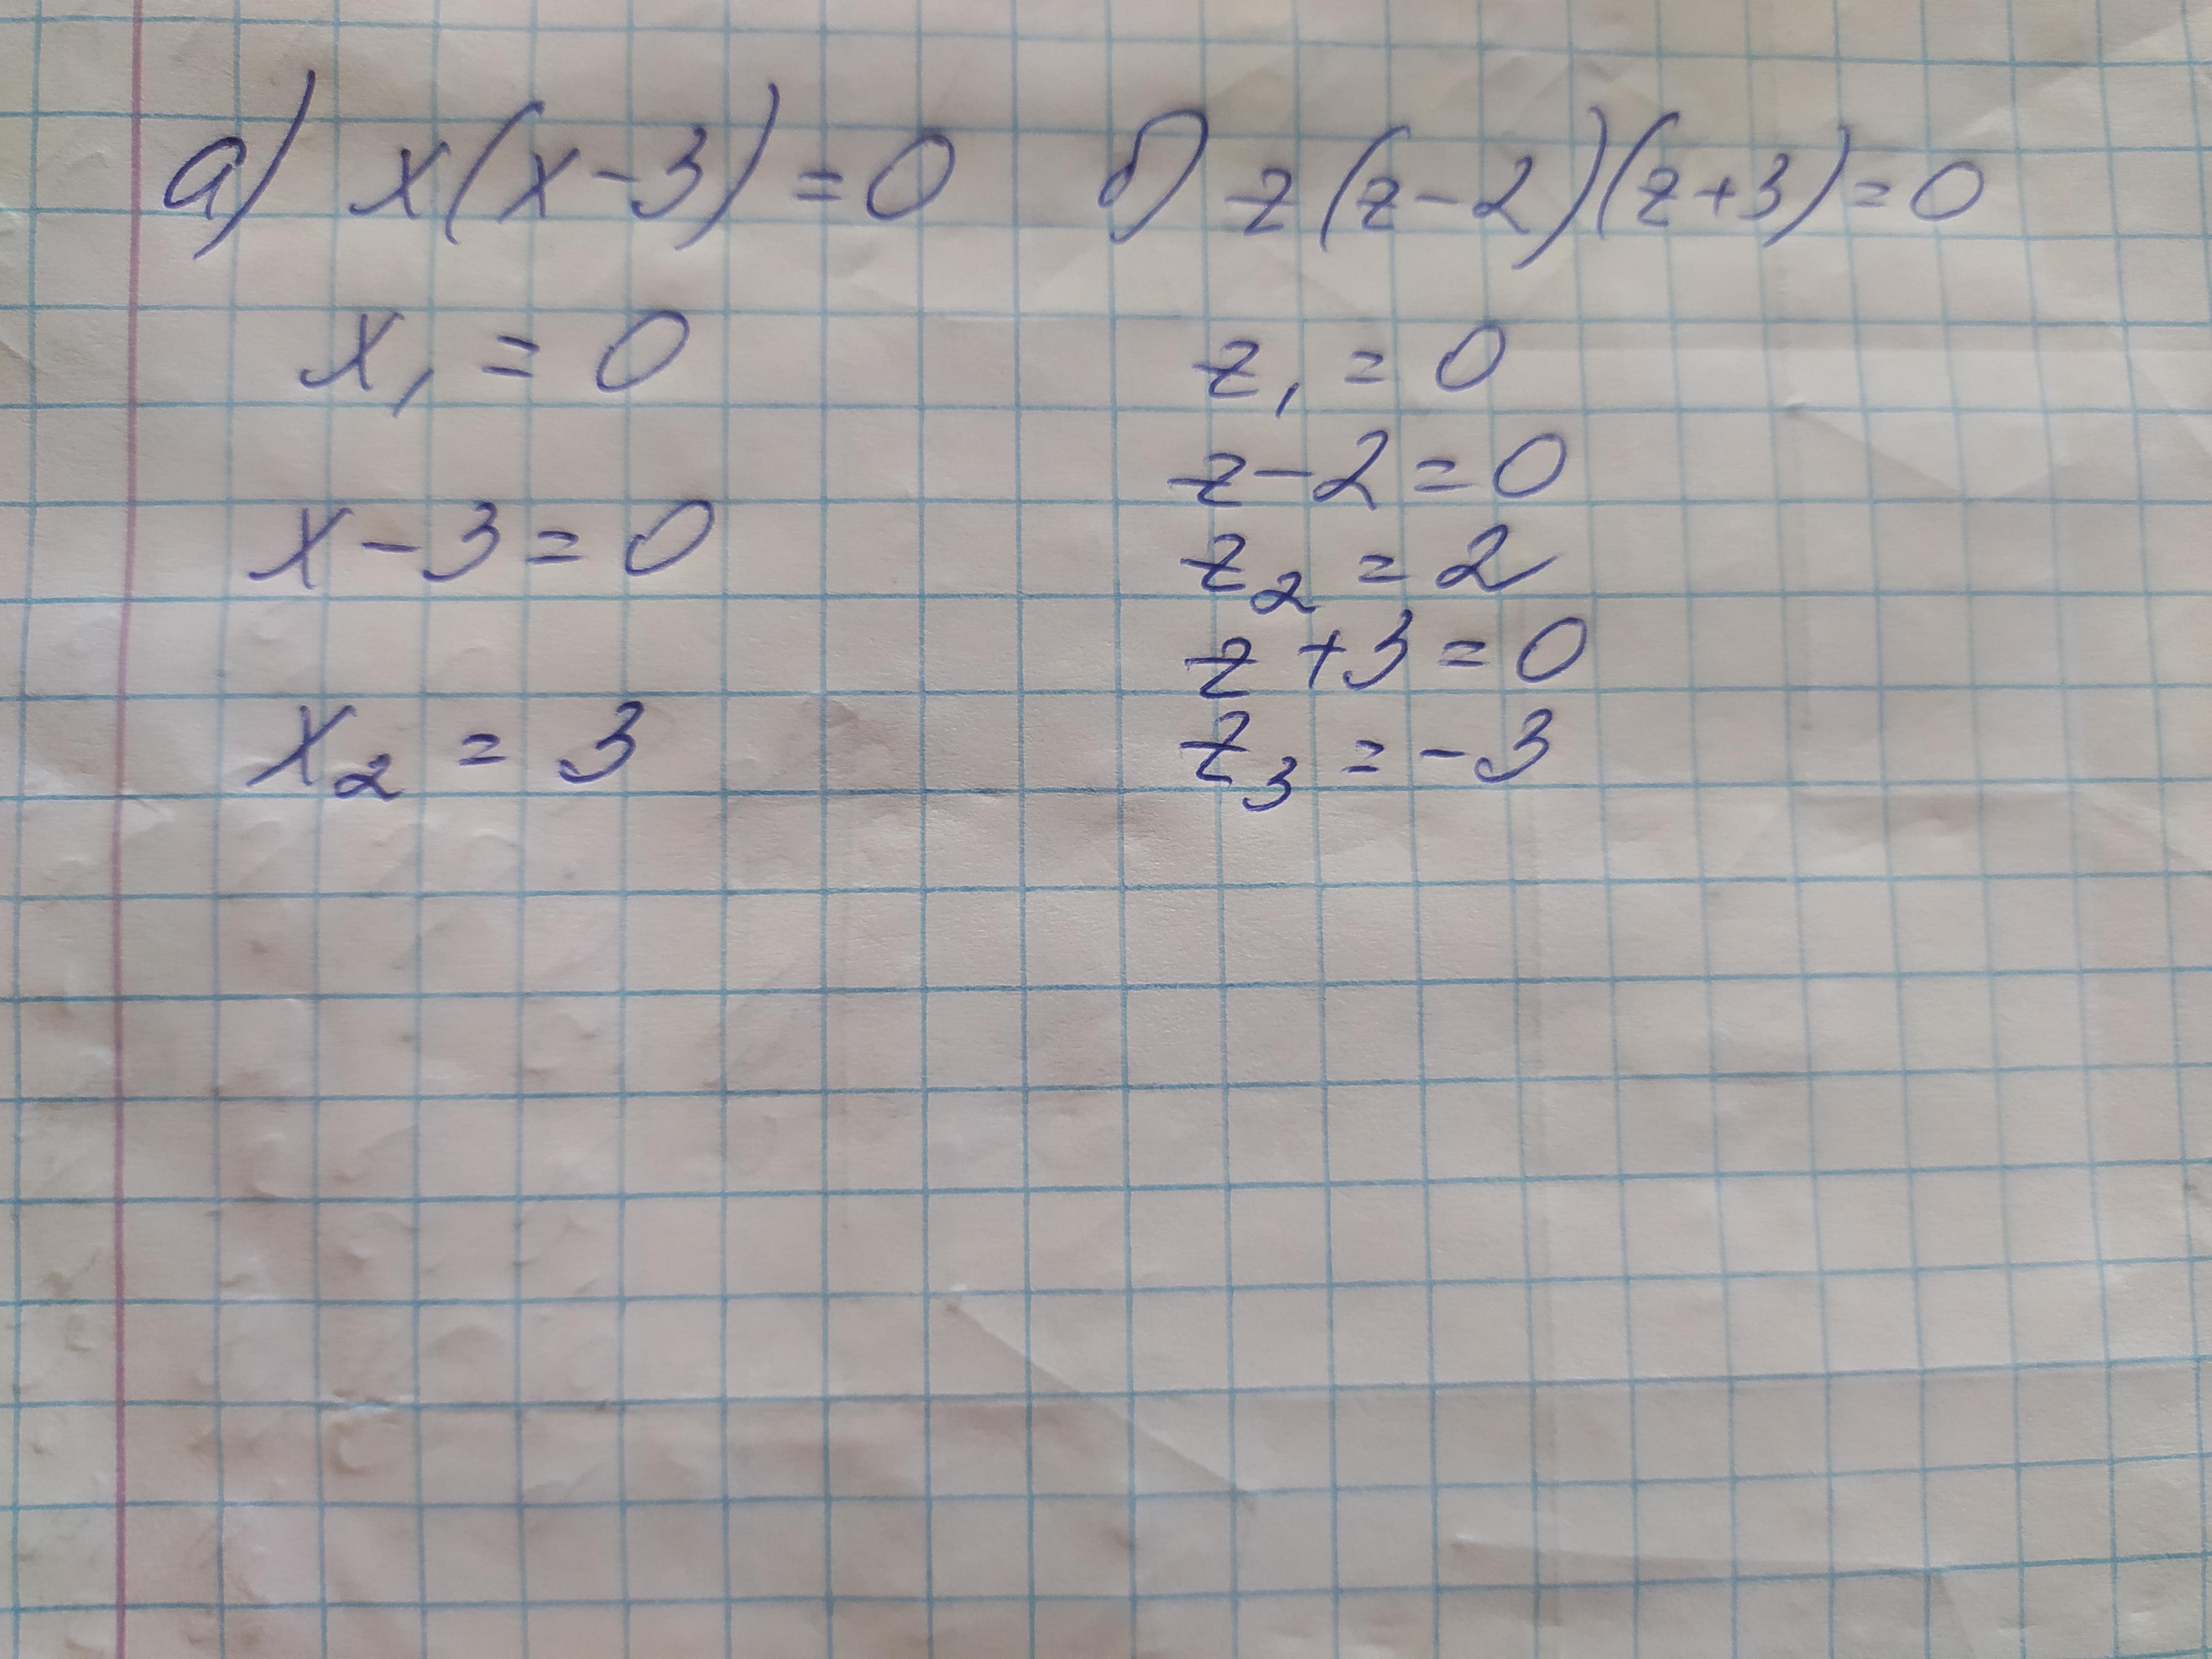 а) x(x-3)=0
x₁ = 0
x-3=0
x₂ = 3
б) z(z-2)(z+3)=0
z₁ = 0
z-2=0
z₂ = 2
z+3=0
z₃ = -3